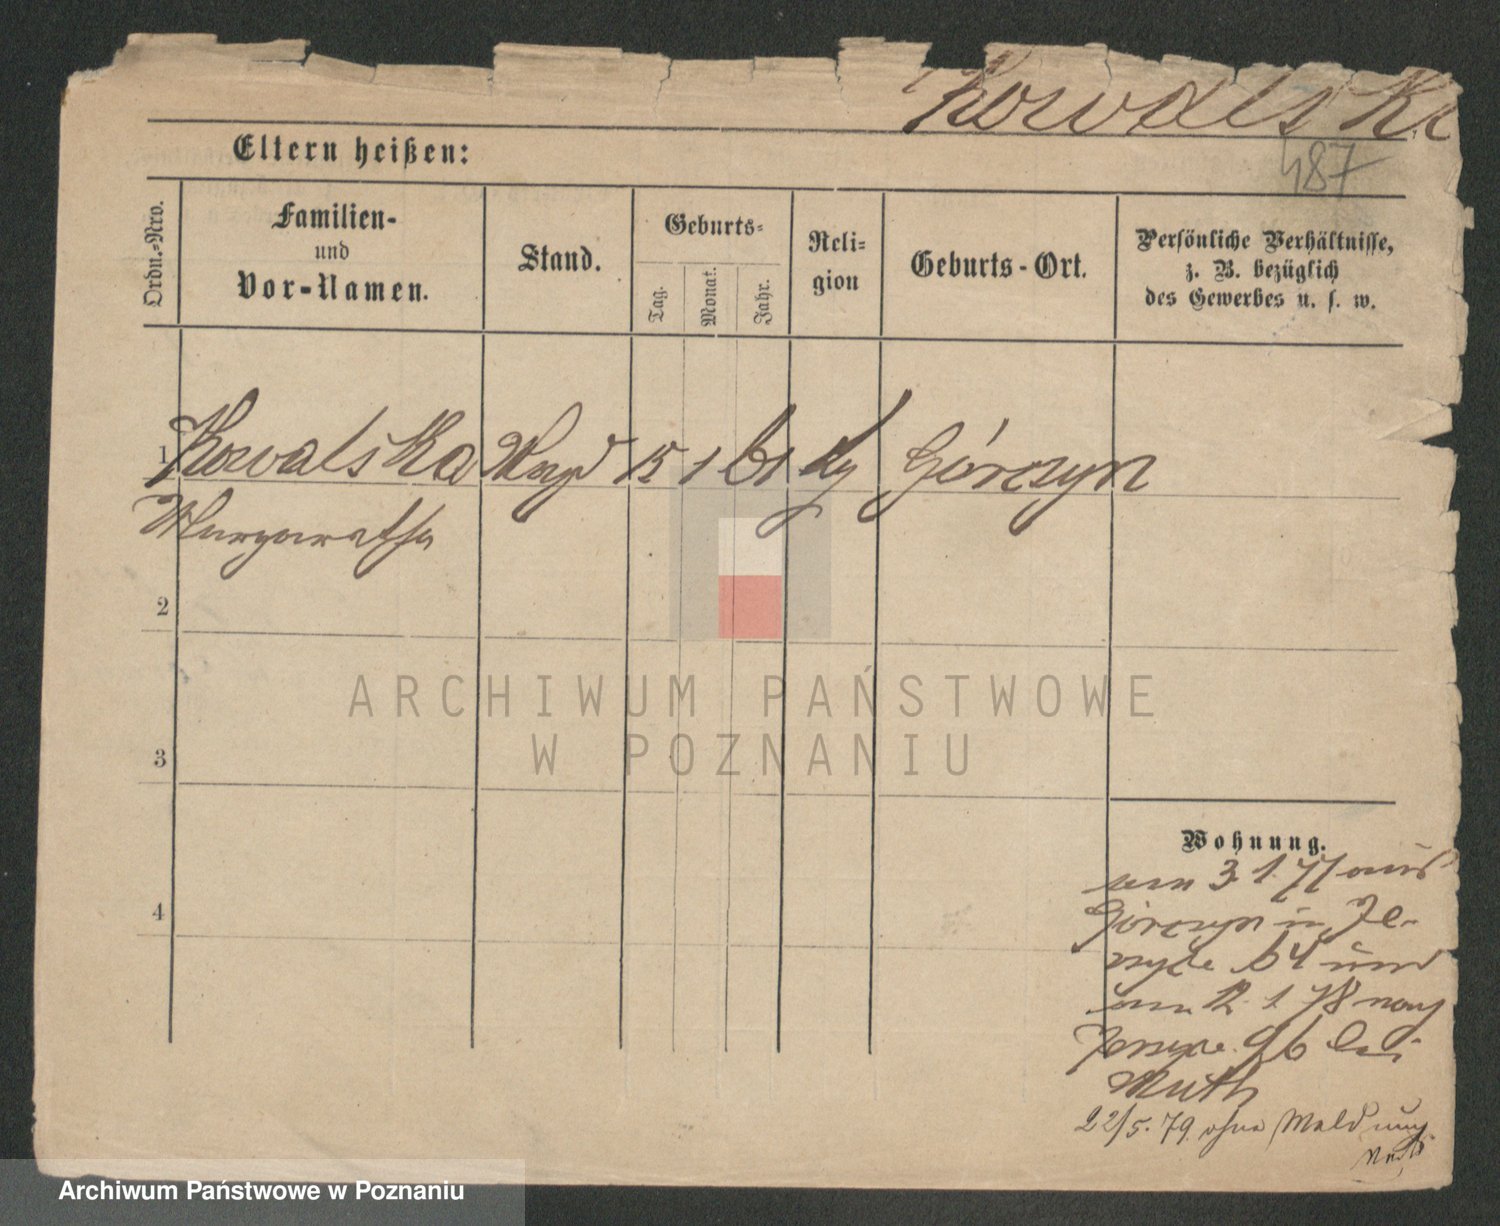 Kowalski
487
Eltern heißen:
Ordn.-Nro.
Familien-
und
Vor-Namen.
Stand.
Geburts-
Tag.
Monat.
Jahr.
Reli-
gion
Geburts-Ort.
Persönliche Verhältnisse,
z. B. bezüglich
des Gewerbes u. s. w.
1 Kowalska Magd 15 1 61 kg Górczyn
Margaretha
2
3
4
Wohnung.
3 1 77 aus
Górczyn in Je-
64 und
am 12 1 78 nach
96 bei
Muth
22/5. 79. ohne Meldung
ARCHIWUM PAŃSTWOWE
W POZNANIU
Archiwum Państwowe w Poznaniu